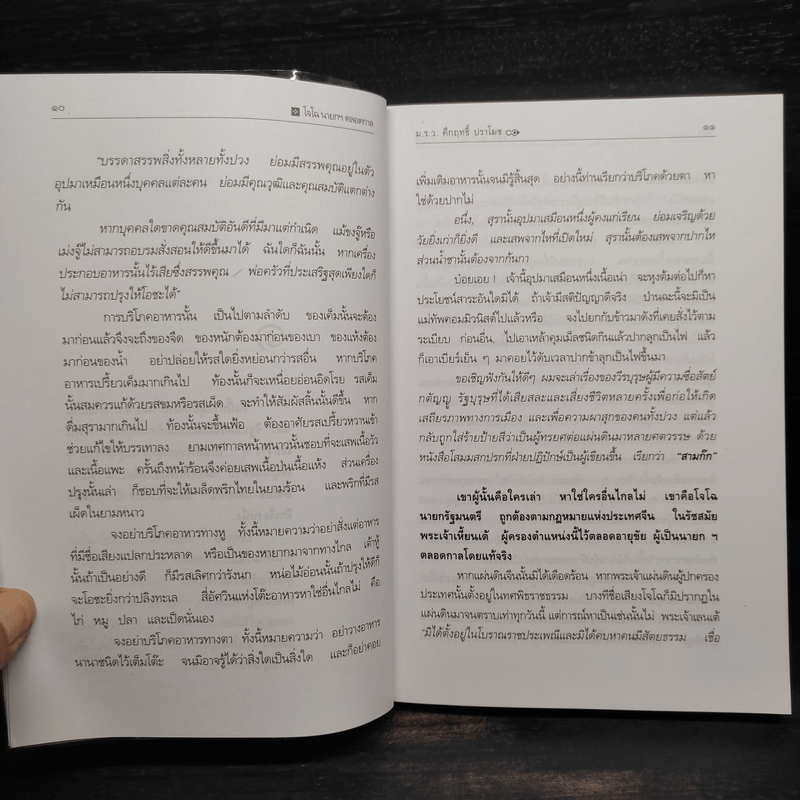 ๑๐
โจโฉ นายกฯ ตลอดกาล
"บรรดาสรรพสิ่งทั้งหลายทั้งปวง ย่อมมีสรรพคุณอยู่ในตัว
อุปมาเหมือนหนึ่งบุคคลแต่ละคน ย่อมมีคุณวุฒิและคุณสมบัติแตกต่าง
กัน
หากบุคคลใดขาดคุณสมบัติอันดีที่มีมาแต่กำเนิด แม้ขงจู๊หรือ
เม่งจู๊ไม่สามารถอบรมสั่งสอนให้ดีขึ้นมาได้ ฉันใดก็ฉันนั้น หากเครื่อง
ประกอบอาหารนั้นไร้เสียซึ่งสรรพคุณ / พ่อครัวที่ประเสริฐสุดเพียงใดก็
ไม่สามารถปรุงให้โอชะได้"
การบริโภคอาหารนั้น เป็นไปตามลำดับ ของเค็มนั้นจะต้อง
มาก่อนแล้วจึงจะถึงของจืด ของหนักต้องมาก่อนของเบา ของแห้งต้อง
มาก่อนของน้ำ อย่าปล่อยให้รสใดยิ่งหย่อนกว่ารสอื่น หากบริโภค
อาหารเปรี้ยวเค็มมากเกินไป ท้องนั้นก็จะเหนื่อยอ่อนอิดโรย รสเค็ม
นั้นสมควรแก้ด้วยรสขมหรือรสเผ็ด จะทำให้สัมผัสลิ้นนั้นดีขึ้น หาก
ดื่มสุรามากเกินไป ท้องนั้นจะขึ้นเฟ้อ ต้องอาศัยรสเปรี้ยวหวานเข้า
ช่วยแก้ไขให้บรรเทาลง ยามเทศกาลหน้าหนาวนั้นชอบที่จะเสพเนื้อวัว
และเนื้อแพะ ครั้นถึงหน้าร้อนจึงค่อยเสพเนื้อปนเนื้อแห้ง ส่วนเครื่อง
ปรุงนั้นเล่า ก็ชอบที่จะให้เมล็ดพริกไทยในยามร้อน และพริกที่มีรส
เผ็ดในยามหนาว
จงอย่าบริโภคอาหารทางหู ทั้งนี้หมายความว่าอย่าสั่งแต่อาหาร
ที่มีชื่อเสียงแปลกประหลาด หรือเป็นของหายากมาจากทางไกล เต้าหู้
นั้นถ้าเป็นอย่างดี ก็มีรสเลิศกว่ารังนก หน่อไม้อ่อนนั้นถ้าปรุงให้ดีก็
จะโอชะยิ่งกว่าปลิงทะเล สี่อัศวินแห่งโต๊ะอาหารหาใช่อื่นไกลไม่ คือ
ไก่ หมู ปลา และเป็ดนั่นเอง
จงอย่าบริโภคอาหารทางตา ทั้งนี้หมายความว่า อย่าวางอาหาร
นานาชนิดไว้เต็มโต๊ะ จนมิอาจรู้ได้ว่าสิ่งใดเป็นสิ่งใด และก็อย่าคอย
ม.ร.ว. คึกฤทธิ์ ปราโมช
๑๑
เพิ่มเติมอาหารนั้นจนมิรู้สิ้นสุด อย่างนี้ท่านเรียกว่าบริโภคด้วยตา หา
ใช่ด้วยปากไม่
อนึ่ง, สุรานั้นอุปมาเสมือนหนึ่งผู้คงแก่เรียน ย่อมเจริญด้วย
วัยยิ่งเก่าก็ยิ่งดี และเสพจากไหที่เปิดใหม่ สุรานั้นต้องเสพจากปากไห
ส่วนน้ำชานั้นต้องจากก้นกา
บ๋อยเอย! เจ้านี้อุปมาเสมือนหนึ่งเนื้อเน่า จะหุงต้มต่อไปก็หา
ประโยชน์สาระอันใดมิได้ ถ้าเจ้ามีสติปัญญาดีจริง ป่านฉะนี้จะมิเป็น
แม่ทัพคอมมิวนิสต์ไปแล้วหรือ จงไปยกกับข้าวมาดังที่เคยสั่งไว้ตาม
ระเบียบ ก่อนอื่น, ไปเอาเหล้าคุมเม็ลชนิดกินแล้วปากลุกเป็นไฟ แล้ว
ก็เอาเบียร์เย็น ๆ มาคอยไว้ดับเวลาปากข้าลุกเป็นไฟขึ้นมา
ขอเชิญฟังกันให้ดีๆ ผมจะเล่าเรื่องของวีรบุรุษผู้มีความซื่อสัตย์
กตัญญู รัฐบุรุษที่ได้เสียสละและเสี่ยงชีวิตหลายครั้งเพื่อก่อให้เกิด
เสถียรภาพทางการเมือง และเพื่อความผาสุกของคนทั้งปวง แต่แล้ว
กลับถูกใส่ร้ายป้ายสีว่าเป็นผู้ทรยศต่อแผ่นดินมาหลายศตวรรษ ด้วย
หนังสือโสมมสกปรกที่ฝ่ายปฏิปักษ์เป็นผู้เขียนขึ้น เรียกว่า "สามก๊ก"
เขาผู้นั้นคือใครเล่า หาใช่ใครอื่นไกลไม่ เขาคือโจโฉ
นายกรัฐมนตรี ถูกต้องตามกฎหมายแห่งประเทศจีน ในรัชสมัย
พระเจ้าเหี้ยนเต้ ผู้ครองตำแหน่งนี้ไว้ตลอดอายุขัย ผู้เป็นนายก ฯ
ตลอดกาลโดยแท้จริง
หากแผ่นดินจีนนั้นมิได้เดือดร้อน หากพระเจ้าแผ่นดินผู้ปกครอง
ประเทศนั้นตั้งอยู่ในทศพิธราชธรรม บางทีชื่อเสียงโจโฉก็มิปรากฏใน
แผ่นดินมาจนตราบเท่าทุกวันนี้ แต่การณ์หาเป็นเช่นนั้นไม่ พระเจ้าเลนเต้
"มิได้ตั้งอยู่ในโบราณราชประเพณีและมิได้คบหาคนมีสัตยธรรม เชื่อ